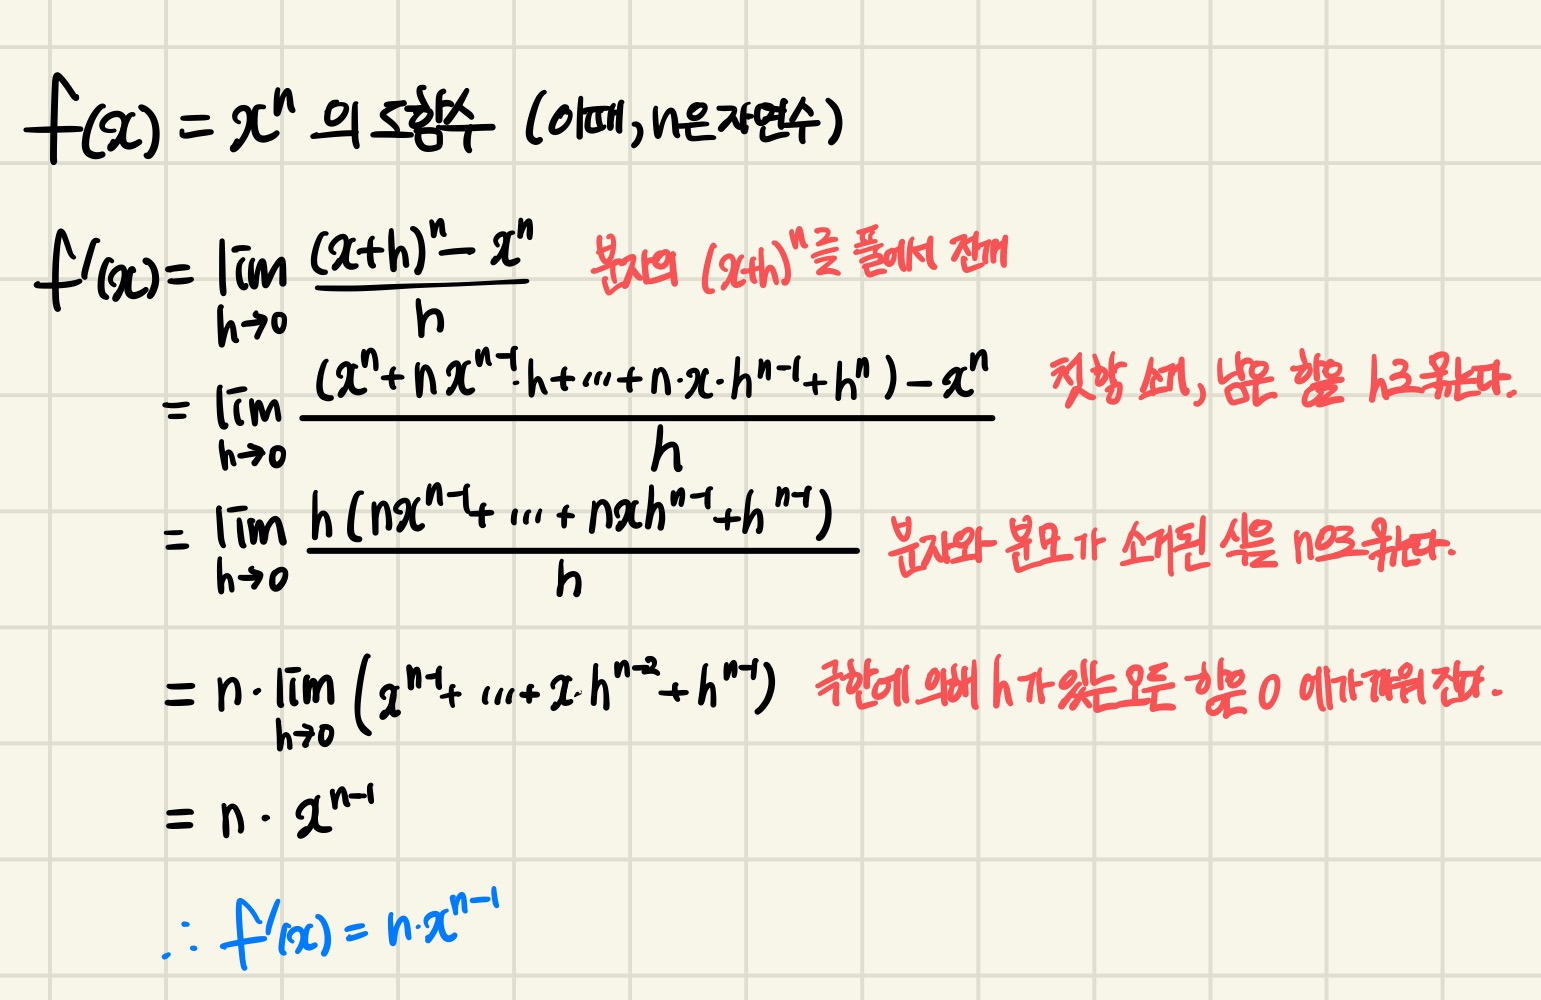 f(x) = xⁿ 의 도함수 (이때, n은 자연수)
f'(x) = lim h→0 ((x+h)ⁿ - xⁿ) / h 분자의 (x+h)ⁿ를 풀에서 전개
= lim h→0 ((xⁿ + nxⁿ⁻¹·h + ... + n·x·hⁿ⁻¹ + hⁿ) - xⁿ) / h 첫항 소거, 남은 항을 h로 묶는다.
= lim h→0 h(nxⁿ⁻¹ + ... + nxhⁿ⁻¹ + hⁿ⁻¹) / h 분자와 분모가 소거된 식을 n으로 묶는다.
= n· lim h→0 (xⁿ⁻¹ + ... + x·hⁿ⁻² + hⁿ⁻¹) 극한에 의해 h가 있는 모든 항은 0에 가까워 진다.
= n · xⁿ⁻¹
∴ f'(x) = n·xⁿ⁻¹